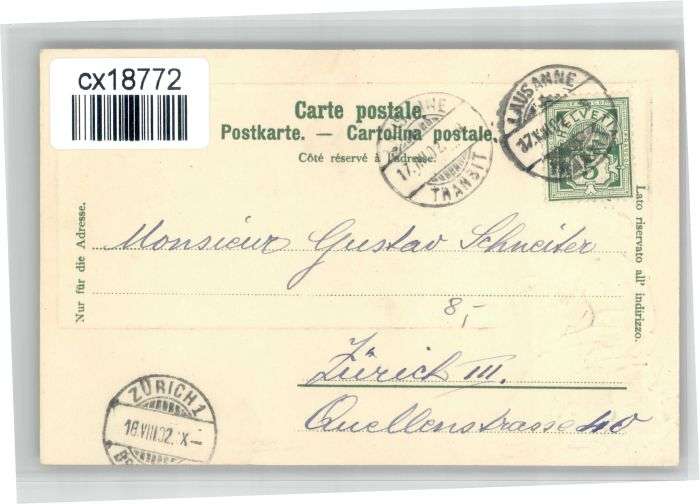 cx18772
Carte postale.
Postkarte. — Cartolina postale.
Côté réservé à l'adresse.
LAUSANNE
HELVETIA
TRANSIT
Nur für die Adresse.
Lato riservato all' indirizzo.
Monsieur Gustav Schneiter
8,-
Zürich III.
Quellenstrasse 40
ZÜRICH 1
18.VIII.02. IX–